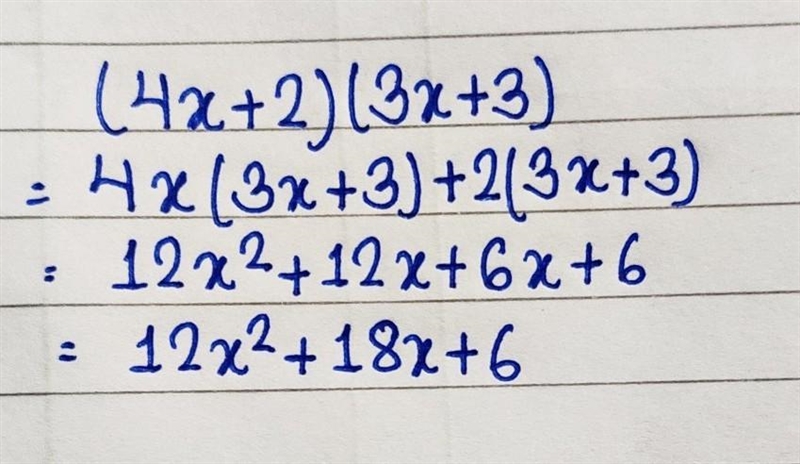 (4x+2)(3x+3)
= 4x(3x+3)+2(3x+3)
= 12x²+12x+6x+6
= 12x²+18x+6